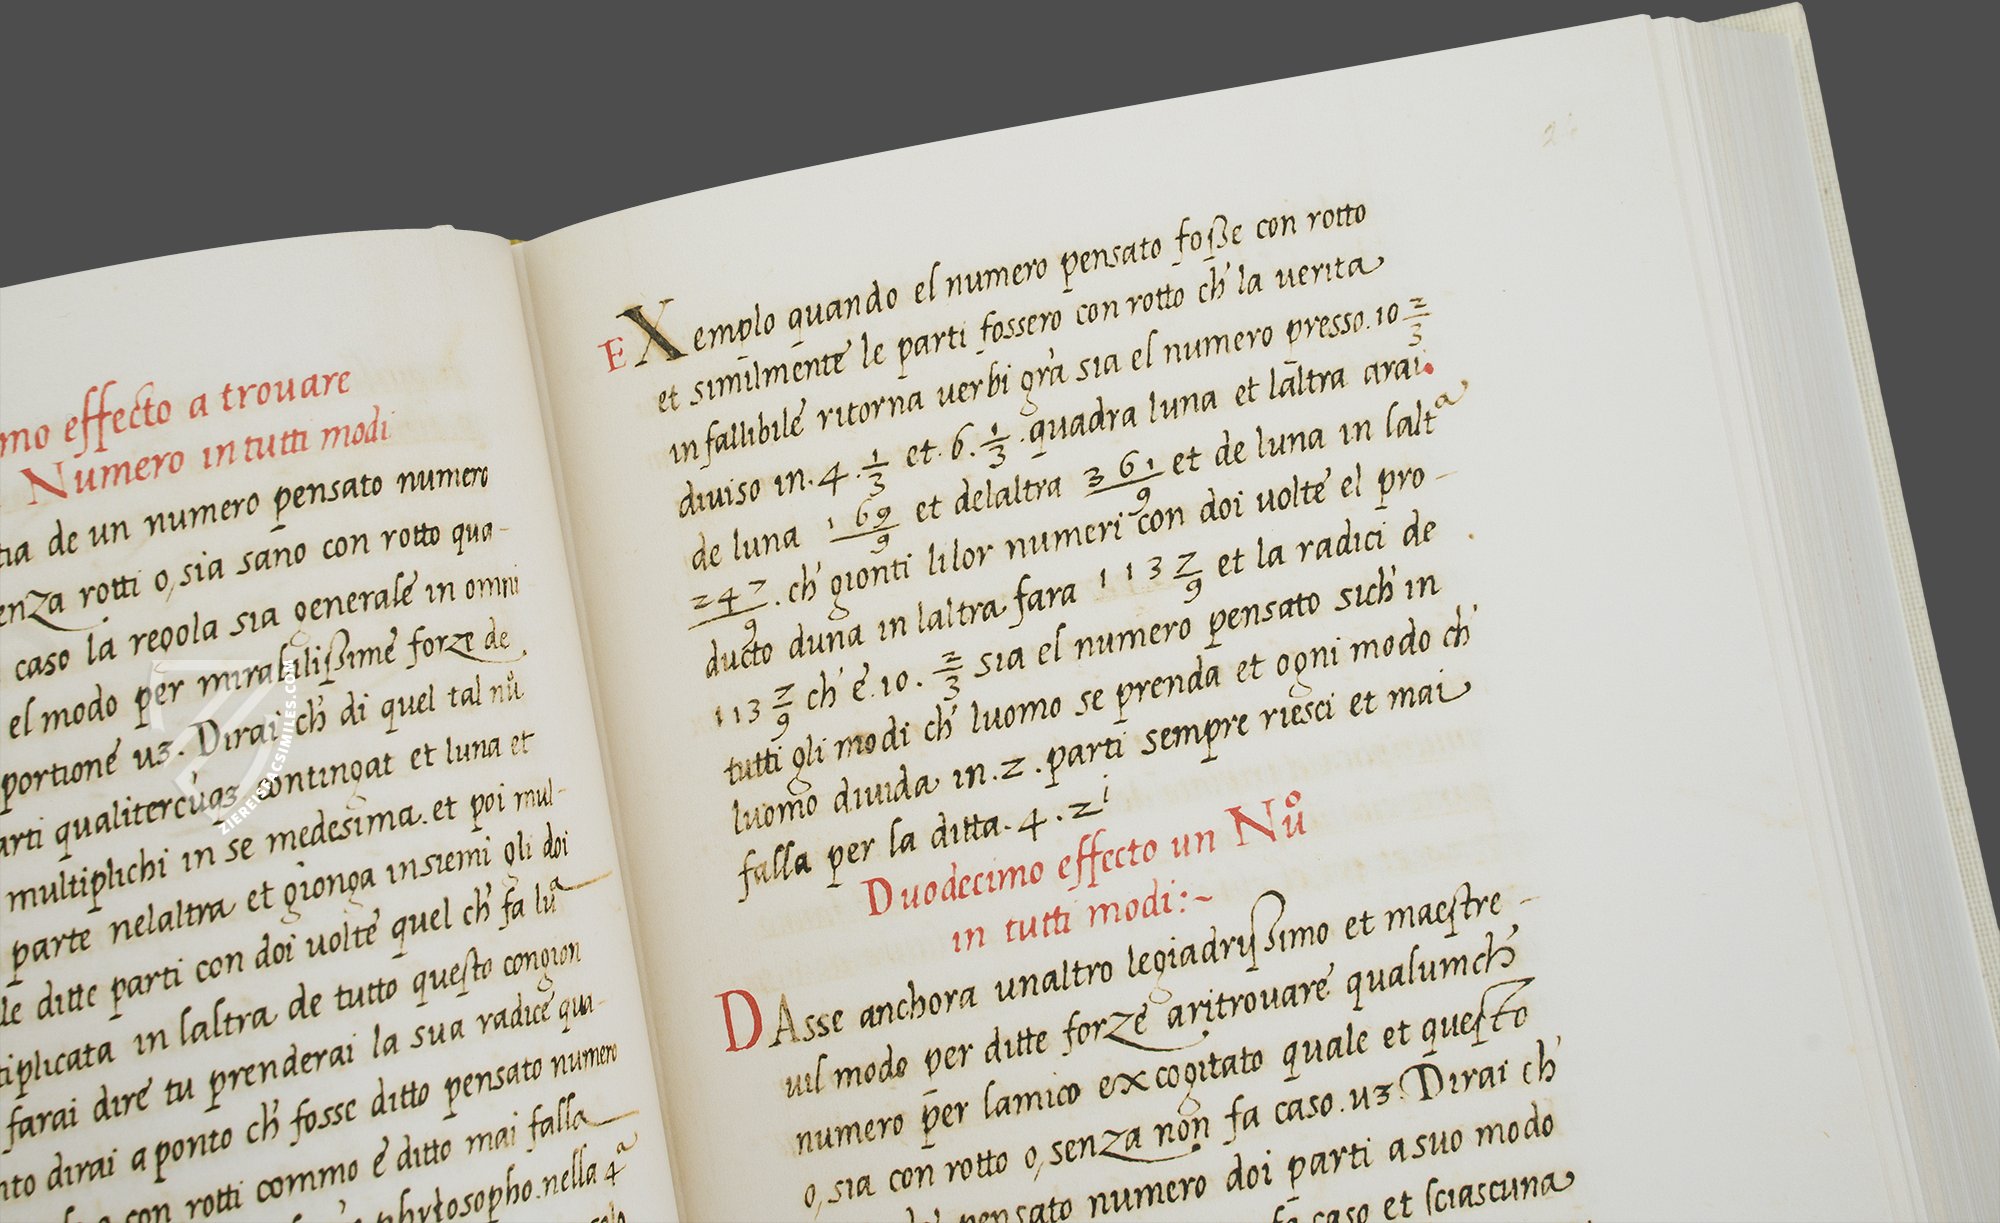 mo effecto a trouare
Numero in tutti modi
tia de un numero pensato numero
enza rotti o, sia sano con rotto qua-
caso la regola sia generale in omni
el modo per mirabilissime forze de
portione uz. Dirai ch' di quel tal nů
arti qualitercuqz contingat et luna et
multiplichi in se medesima. et poi mul-
parte nelaltra et gionga insiemi gli doi
le ditte parti con doi uolte quel ch' fa luᵃ
tiplicata in laltra de tutto questo congion
farai dire tu prenderai la sua radice qua-
nto dirai a ponto ch' fosse ditto pensato numero
con rotti commo é ditto mai falla
phylosopho. nella 4ᵃ
EXemplo quando el numero pensato foße con rotto
et similmente le parti fossero con rotto ch' la uerita
infallibile ritorna uerbi gra sia el numero presso. 10 2/3
diuiso in. 4. 1/3 et. 6. 1/3. quadra luna et laltra arai.
de luna 169/9 et delaltra 361/9 et de luna in laltᵃ
247/9. ch' gionti li lor numeri con doi uolte el pro-
ducto duna in laltra fara 113 7/9 et la radici de
113 7/9 ch' é. 10. 2/3 sia el numero pensato sich' in
tutti gli modi ch' luomo se prenda et ogni modo ch'
luomo diuida in. 2. parti sempre riesci et mai
falla per la ditta. 4. 2ⁱ
Duodecimo effecto un Nů
in tutti modi:~
DAsse anchora unaltro legiadrissimo et maestre-
uil modo per ditte forze aritrouare qualumch'
numero per lamico excogitato quale et questo
o, sia con rotto o, senza non fa caso. uz. Dirai ch'
pensato numero doi parti a suo modo
fa caso et sciascuna
ZIEREIS FACSIMILES.COM